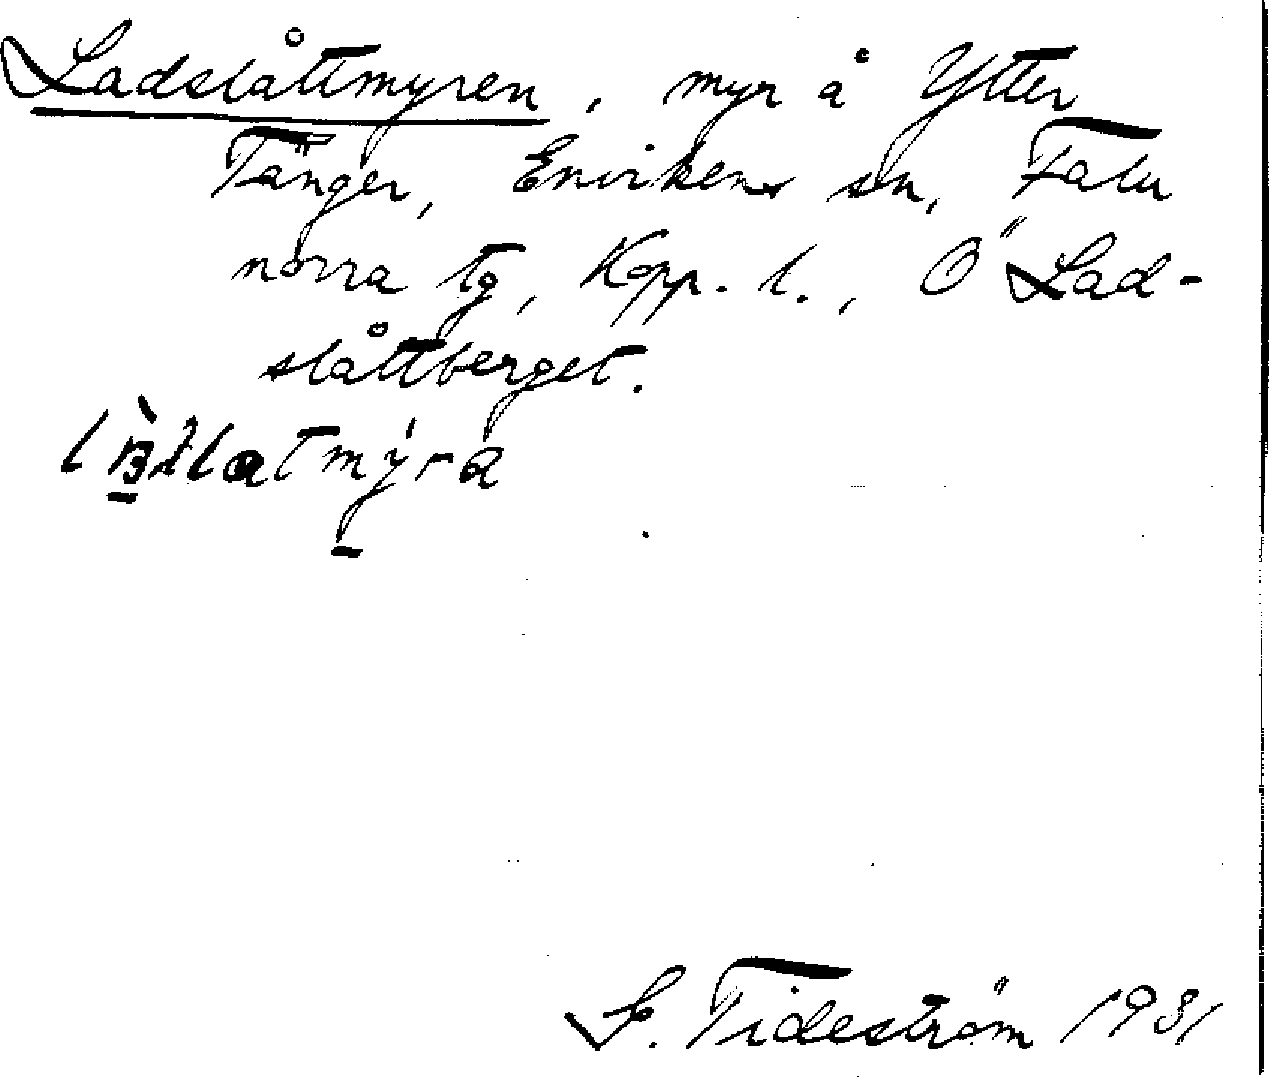 Ladslåttmyren, myr å Ytter
Tänger, Envikens sn, Falu
norra tg, Kopp. l., Ö Lad-
slåttberget.
S. Tideström 1931